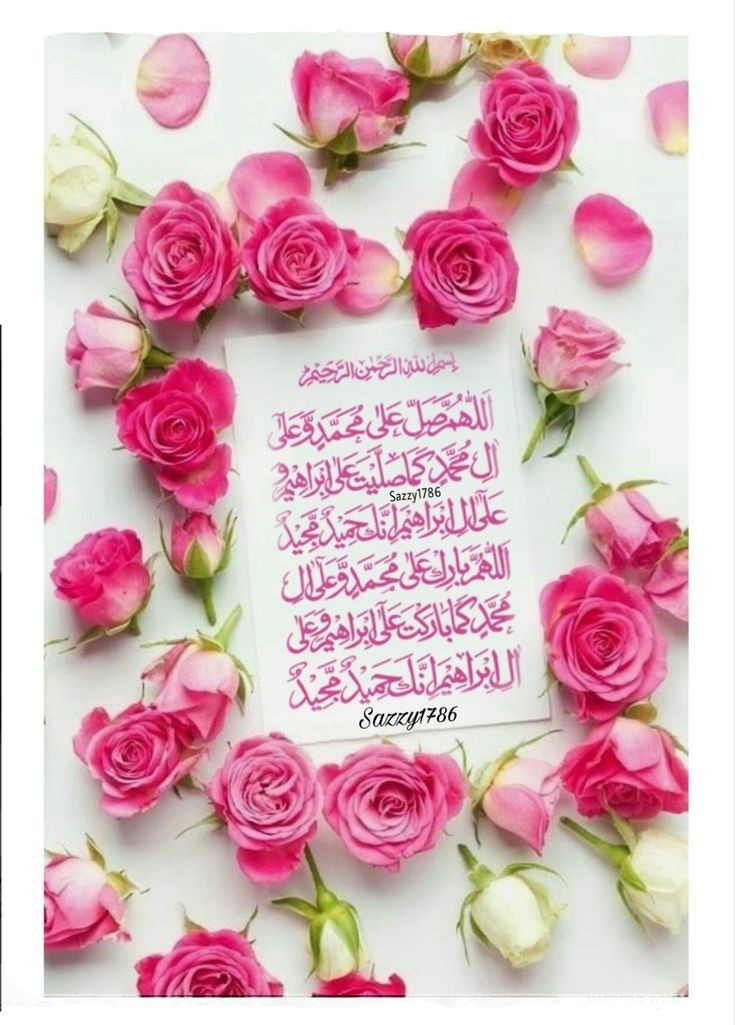 بِسْمِ اللهِ الرَّحْمٰنِ الرَّحِيْمِ
اَللّٰهُمَّ صَلِّ عَلٰى مُحَمَّدٍ وَّعَلٰٓى
اٰلِ مُحَمَّدٍ كَمَا صَلَّيْتَ عَلٰٓى اِبْرَاهِيْمَ وَ
Sazzy1786
عَلٰٓى اٰلِ اِبْرَاهِيْمَ اِنَّكَ حَمِيْدٌ مَّجِيْدٌ
اَللّٰهُمَّ بَارِكْ عَلٰى مُحَمَّدٍ وَّعَلٰٓى اٰلِ
مُحَمَّدٍ كَمَا بَارَكْتَ عَلٰٓى اِبْرَاهِيْمَ وَعَلٰٓى
اٰلِ اِبْرَاهِيْمَ اِنَّكَ حَمِيْدٌ مَّجِيْدٌ
Sazzy1786